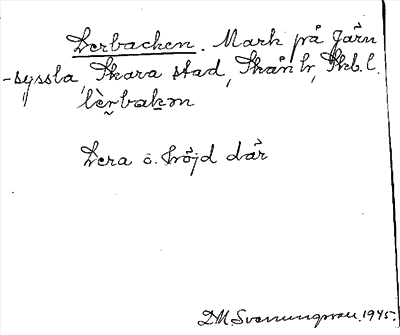 Lerbacken. Mark på Järn
-syssla, Skara stad, Skån hr, Skb. l.
lèrbakən
Lera o. höjd där
D.M. Svenungsson. 1945.